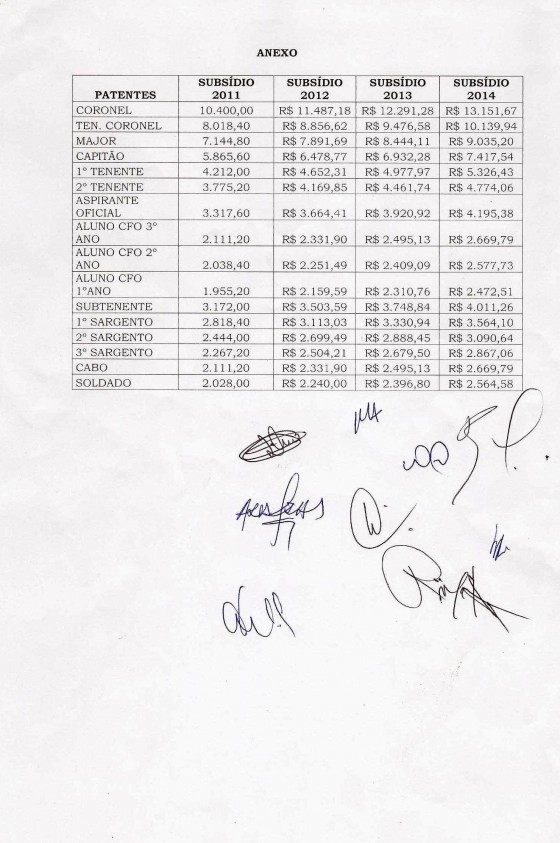 ANEXO
PATENTES SUBSÍDIO 2011 SUBSÍDIO 2012 SUBSÍDIO 2013 SUBSÍDIO 2014
CORONEL 10.400,00 R$ 11.487,18 R$ 12.291,28 R$ 13.151,67
TEN. CORONEL 8.018,40 R$ 8.856,62 R$ 9.476,58 R$ 10.139,94
MAJOR 7.144,80 R$ 7.891,69 R$ 8.444,11 R$ 9.035,20
CAPITÃO 5.865,60 R$ 6.478,77 R$ 6.932,28 R$ 7.417,54
1º TENENTE 4.212,00 R$ 4.652,31 R$ 4.977,97 R$ 5.326,43
2º TENENTE 3.775,20 R$ 4.169,85 R$ 4.461,74 R$ 4.774,06
ASPIRANTE OFICIAL 3.317,60 R$ 3.664,41 R$ 3.920,92 R$ 4.195,38
ALUNO CFO 3º ANO 2.111,20 R$ 2.331,90 R$ 2.495,13 R$ 2.669,79
ALUNO CFO 2º ANO 2.038,40 R$ 2.251,49 R$ 2.409,09 R$ 2.577,73
ALUNO CFO 1ºANO 1.955,20 R$ 2.159,59 R$ 2.310,76 R$ 2.472,51
SUBTENENTE 3.172,00 R$ 3.503,59 R$ 3.748,84 R$ 4.011,26
1º SARGENTO 2.818,40 R$ 3.113,03 R$ 3.330,94 R$ 3.564,10
2º SARGENTO 2.444,00 R$ 2.699,49 R$ 2.888,45 R$ 3.090,64
3º SARGENTO 2.267,20 R$ 2.504,21 R$ 2.679,50 R$ 2.867,06
CABO 2.111,20 R$ 2.331,90 R$ 2.495,13 R$ 2.669,79
SOLDADO 2.028,00 R$ 2.240,00 R$ 2.396,80 R$ 2.564,58